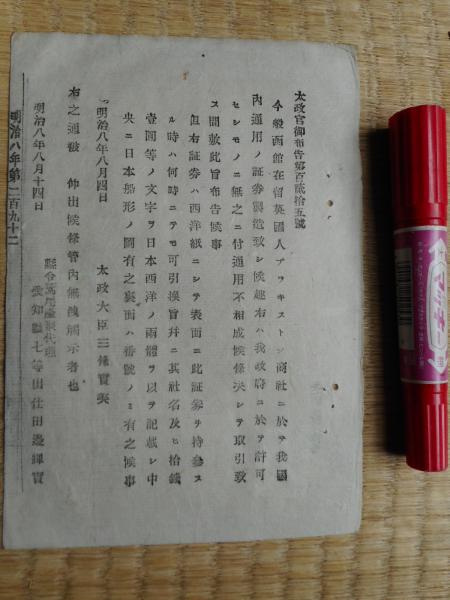 太政官御布告第百貳拾五號
今般函館在留英國人ブラキストン商社ニ於テ我國
內通用ノ証券製造致シ候趣右ハ我政府ニ於テ許可
セシモノニ無之ニ付通用不相成候條決シテ取引致
ス間敷此旨布告候事
但右証券ハ西洋紙ニシテ表面ニ此証券ヲ持參ス
ル時ハ何時ニテモ可引換旨并ニ其社名及ヒ拾錢
壹圓等ノ文字ヲ日本西洋ノ兩體ヲ以テ記載シ中
央ニ日本船形ノ圖有之裏面ハ番號ノミ有之候事
明治八年八月四日
太政大臣三條實美
右之通被仰出候條管內無洩觸示者也
明治八年八月十四日
縣令鷲尾隆聚代理
愛知縣七等出仕田邊輝實
明治八年第二百九十二
マッキー